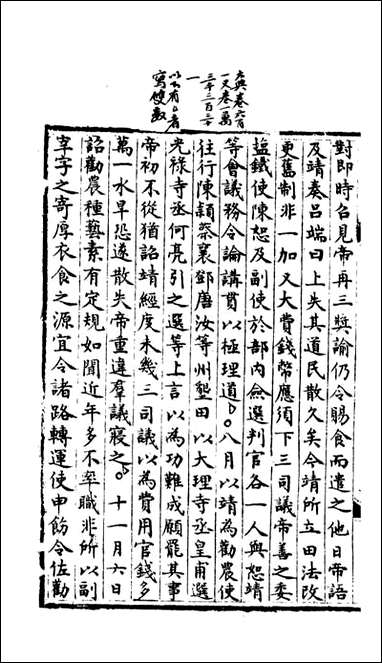 大典卷六百
一又卷一萬
三千三百三十
一
以下有○者
寫雙數
對即時召見帝再三奬諭仍令賜食而遣之他日帝語
及靖奏吕端曰上失其道民散久矣今靖所立田法改
更舊制非一加又大費錢幣應須下三司議帝善之委
鹽鐵使陳恕及副使於部内僉選判官各一人與恕靖
等會議務令論講貫以極理道○八月以靖為勸農使
往行陳潁蔡襄鄧唐汝等州墾田以大理寺丞皇甫選
光禄寺丞何亮引之選等上言以為功難成願罷其事
帝初不從猶詔靖經度未幾三司議以為費用官錢多
萬一水旱恐遂散失帝重違羣議寢之○十一月六日
詔勸農種藝素有定規如聞近年多不率職非所以副
宰字之寄厚衣食之源宜令諸路轉運使申飭令佐勸